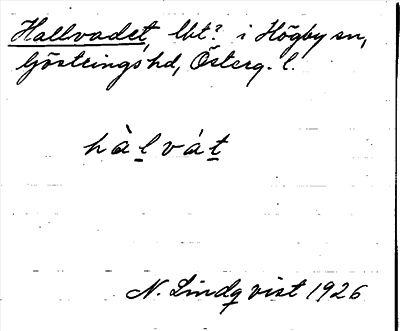 Hallvadet, lbt? i Högby sn,
Göstrings hd, Österg. l.
hàlvát
N. Lindqvist 1926